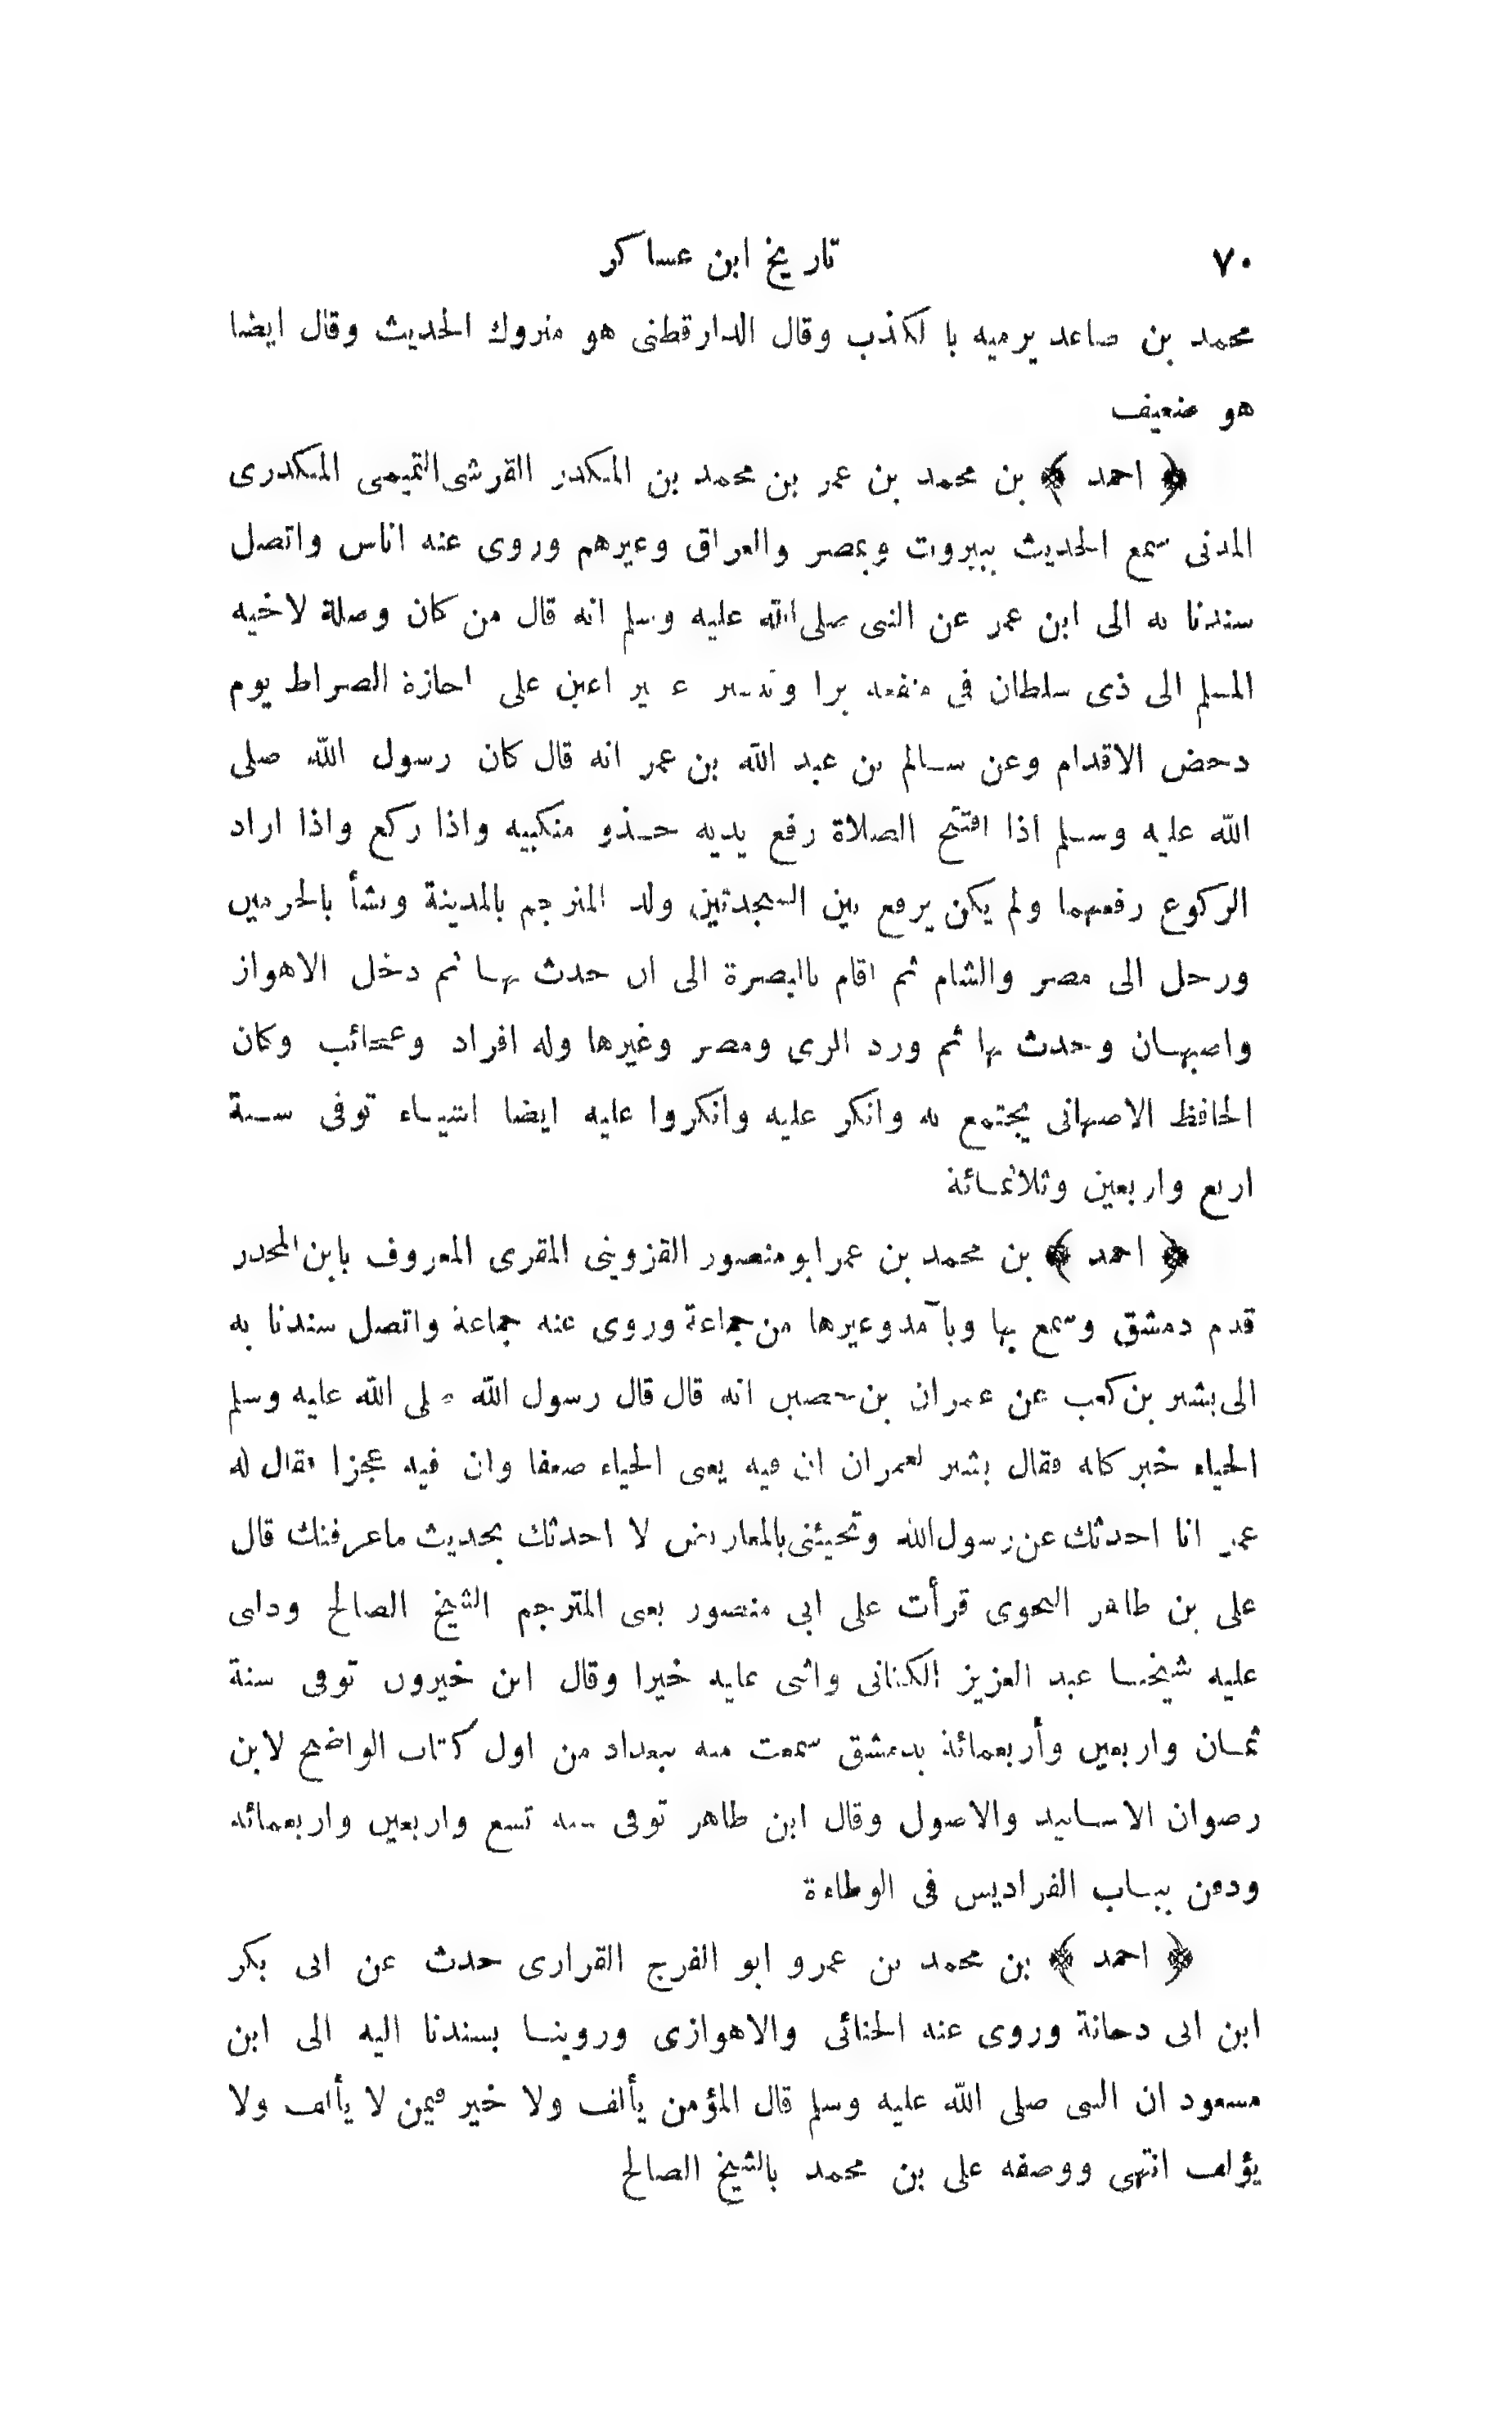 ٧٠
تاريخ ابن عساكر
محمد بن صاعد يرميه بالكذب وقال الدارقطنى هو متروك الحديث وقال ايضا
هو ضعيف
﴿ احمد ﴾ بن محمد بن عمر بن محمد بن المنكدر القرشى التميمى المنكدرى
المدنى سمع الحديث ببيروت وبمصر والعراق وغيرهم وروى عنه اناس واتصل
سندنا به الى ابن عمر عن النبى صلى الله عليه وسلم انه قال من كان وصلة لاخيه
المسلم الى ذى سلطان فى منفعة برا وتيسير عسير اعين على اجازة الصراط يوم
دحض الاقدام وعن سالم بن عبد الله بن عمر انه قال كان رسول الله صلى
الله عليه وسلم اذا افتتح الصلاة رفع يديه حذو منكبيه واذا ركع واذا اراد
الركوع رفعهما ولم يكن يرفع بين السجدتين ولد المترجم بالمدينة ونشأ بالحرمين
ورحل الى مصر والشام ثم اقام بالبصرة الى ان حدث بها ثم دخل الاهواز
واصبهان وحدث بها ثم ورد الرى ومصر وغيرها وله افراد وعجائب وكان
الحافظ الاصبهانى يجتمع به وانكر عليه وانكروا عليه ايضا اشياء توفى سنة
اربع واربعين وثلاثمائة
﴿ احمد ﴾ بن محمد بن عمر ابو منصور القزوينى المقرى المعروف بابن المحدر
قدم دمشق وسمع بها وبآمد وغيرها من جماعة وروى عنه جماعة واتصل سندنا به
الى بشير بن كعب عن عمران بن حصين انه قال قال رسول الله صلى الله عليه وسلم
الحياء خير كله فقال بشير لعمران ان فيه يعنى الحياء ضعفا وان فيه عجزا فقال له
عمر انا احدثك عن رسول الله وتجيئنى بالمعاريض لا احدثك بحديث ماعرفتك قال
على بن طاهر النحوى قرأت على ابى منصور يعنى المترجم الشيخ الصالح ودلنى
عليه شيخنا عبد العزيز الكتانى واثنى عليه خيرا وقال ابن خيرون توفى سنة
ثمان واربعين وأربعمائة بدمشق سمعت منه ببغداد من اول كتاب الواضح لابن
رضوان الاسانيد والاصول وقال ابن طاهر توفى سنة تسع واربعين واربعمائة
ودفن بباب الفراديس فى الوطاءة
﴿ احمد ﴾ بن محمد بن عمرو ابو الفرج القرارى حدث عن ابى بكر
ابن ابى دجانة وروى عنه الحنائى والاهوازى وروينا بسندنا اليه الى ابن
مسعود ان النبى صلى الله عليه وسلم قال المؤمن يألف ولا خير فيمن لا يألف ولا
يؤلف انتهى ووصفه على بن محمد بالشيخ الصالح